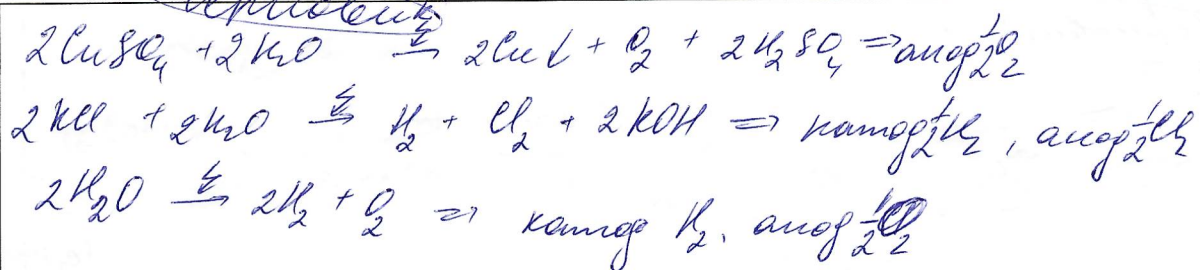 Черновик
2CuSO₄ + 2H₂O →^{ξ} 2Cu↓ + O₂ + 2H₂SO₄ ⇒ анод ½O₂
2KCl + 2H₂O →^{ξ} H₂ + Cl₂ + 2KOH ⇒ катод ½H₂, анод ½Cl₂
2H₂O →^{ξ} 2H₂ + O₂ ⇒ катод H₂, анод ½O₂